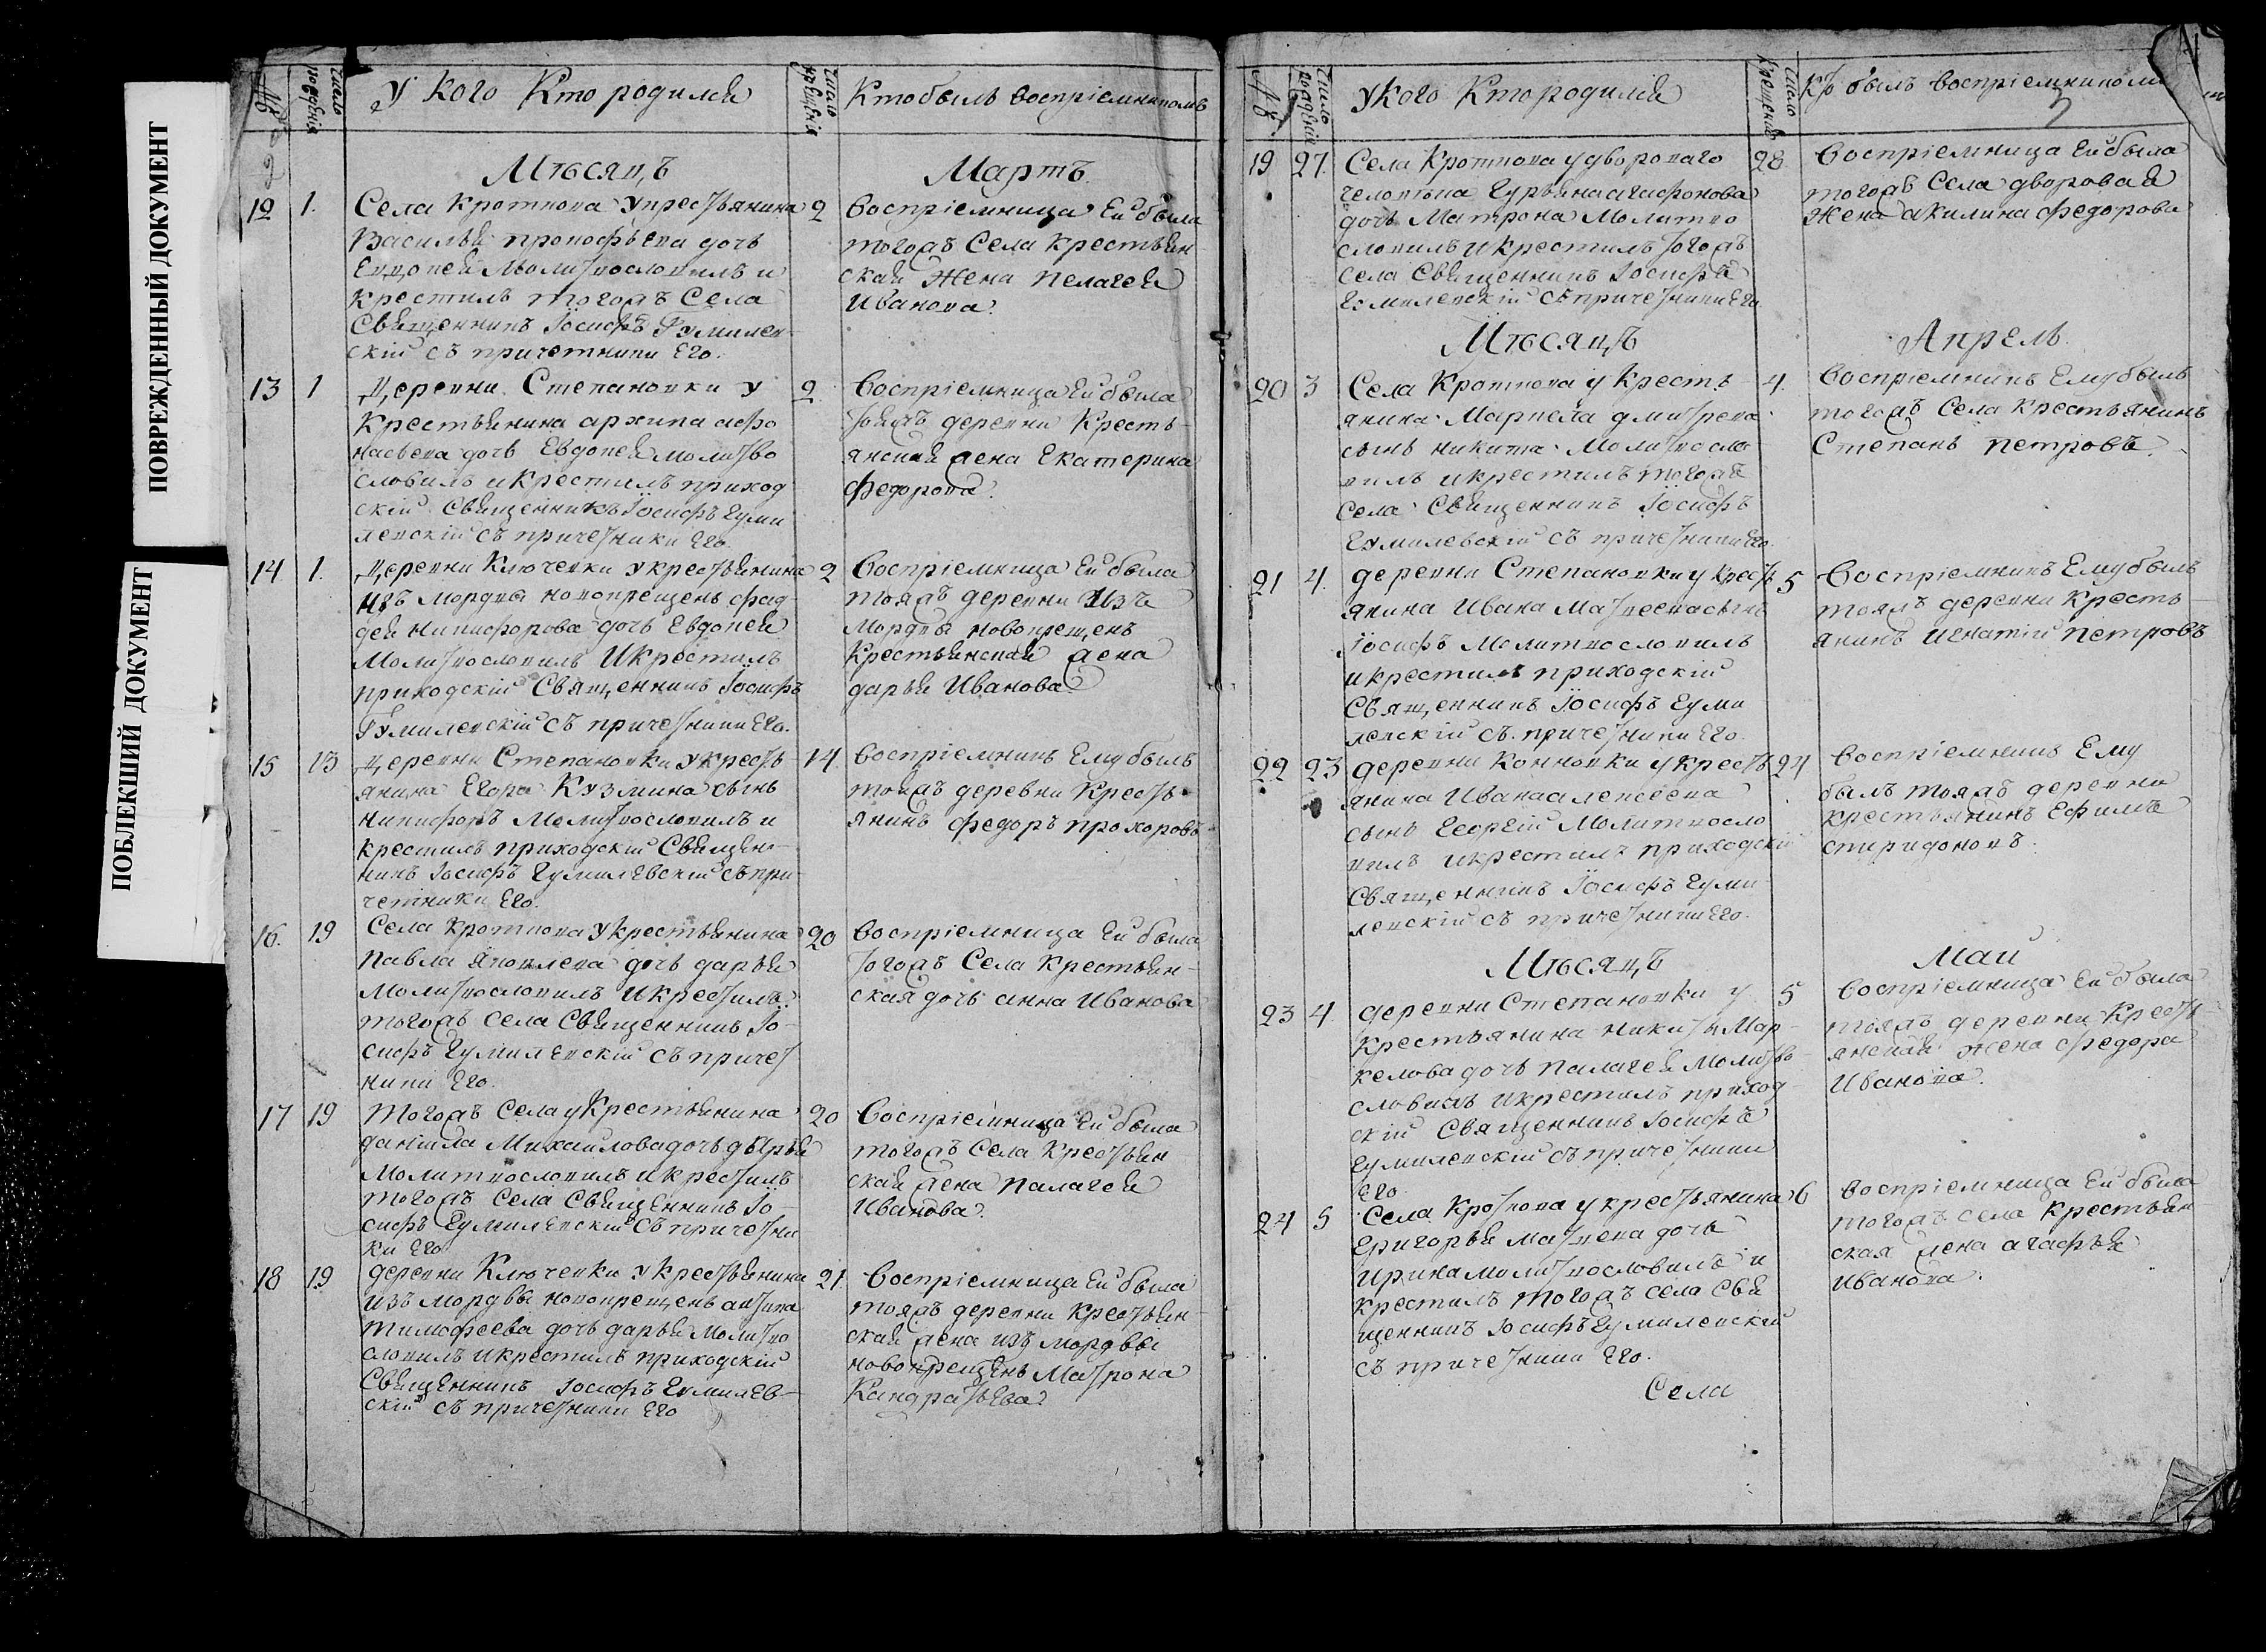 ПОВРЕЖДЕННЫЙ ДОКУМЕНТ
ПОБЛЕКШИЙ ДОКУМЕНТ
№
Число рожденія
У кого Кто родился
Число крещенія
Кто былъ воспріемникомъ
Мѣсяцъ
Мартъ
12 1. Села Кроткова у крестьянина
Василья прокофьева дочь
Евдокея Молитвословилъ и
крестилъ тогожъ Села
Священникъ Іосифъ Гумилев-
скій съ причетники Его.
2 Воспріемница Ей была
тогожъ Села крестьян-
ская жена Пелагея
Иванова.
13 1 Деревни Степановки у
Крестьянина архипа афо
насьева дочь Евдокея молитво
словилъ и крестилъ приход
скій Священникъ Іосифъ Гуми
левскій съ причетники Его.
2. Воспріемница Ей была
тояжъ деревни Кресть-
янская жена Екатерина
Федорова.
14. 1. Деревни Ключевки у крестьянина
изъ Мордвы новокрещенъ фад-
дея Никифорова дочь Евдокея
Молитвословилъ И крестилъ
приходскій Священникъ Іосифъ
Гумилевскій съ причетники Его.
2 Воспріемница Ей была
тояжъ деревни Изъ
Мордвы новокрещенъ
Крестьянская жена
дарья Иванова
15 13 Деревни Степановки у кресть-
янина Егора Кузмина сынъ
Никифоръ Молитвословилъ и
крестилъ приходскій Священ-
никъ Іосифъ Гумилевскій съ при-
четники Его.
14. Воспріемникъ Ему былъ
тояжъ деревни Кресть-
янинъ федоръ прохоровъ
16. 19 Села Кроткова у крестьянина
Павла Яковлева дочь дарья
Молитвословилъ И крестилъ
тогожъ села Священникъ Іо-
сифъ Гумилевскій съ причет
ники Его.
20 Воспріемница Ей была
тогожъ Села Крестьян-
ская дочь анна Иванова
17 19 Тогожъ Села у Крестьянина
даніила Михаилова дочь дарья
Молитвословилъ и крестилъ
тогожъ Села Священникъ Іо-
сифъ Гумилевскій съ причетни
ки Его
20 Воспріемница Ей была
тогожъ Села Крестьян
ская жена Палагея
Иванова.
18 19 деревни Ключевки у крестьянина
изъ Мордвы новокрещенъ антипа
Тимофеева дочь дарья Молитво
словилъ и крестилъ приходскій
Священникъ Іосифъ Гумилев-
скій съ причетники Его
21. Воспріемница Ей была
тояжъ деревни Крестьян
ская жена изъ мордвы
новокрещенъ Матрона
Кандратьева
№
Число рожденія
У кого Кто родился
Число Крещенія
Кто былъ воспріемникомъ
19 27. Села Кроткова у двороваго
человѣка Гурьяна агафонова
дочь Матрона Молитво
словилъ и крестилъ тогожъ
села Священникъ Іосифъ
Гумилевскій съ причетники Его.
28 Воспріемница Ей была
тогожъ Села дворовая
Жена акилина федорова
Мѣсяцъ
Апрель.
20 3 Села Кроткова у Кресть-
янина Маркела дмитрева
сынъ никита Молитвосло
вилъ и крестилъ тогожъ
Села Священникъ Іосифъ
Гумилевскій съ причетники Его.
4. Воспріемникъ Ему былъ
тогожъ Села Крестьянинъ
Степанъ петровъ.
21 4. деревни Степановки у Кресть
янина Ивана Матвеева сынъ
Іосифъ Молитвословилъ
и крестилъ приходскій
Священникъ Іосифъ Гуми
левскій съ причетники Его.
5 Воспріемникъ Ему былъ
тояжъ деревни Кресть-
янинъ Игнатій петровъ
22 23 деревни Конновки у Кресть
янина Ивана алексеева
сынъ Георгій Молитвосло
вилъ и крестилъ приходскій
Священникъ Іосифъ Гуми
левскій съ причетники Его.
24 Воспріемникъ Ему
былъ тояжъ деревни
Крестьянинъ Ефимъ
спиридоновъ.
Мѣсяцъ
Маи
23 4. деревни Степановки у
Крестьянина Никиты Мар-
келова дочь Палагея Молитво-
словилъ и крестилъ приход
скій Священникъ Іосифъ
Гумилевскій съ причетники
Его.
5 Воспріемница Ей была
тояжъ деревни Кресть
янская жена федора
Иванова.
24 5 Села Кроткова у крестьянина
Григорья Матвева дочь
Ирина молитвословилъ и
крестилъ тогожъ села Свя
щенникъ Іосифъ Гумилевскій
съ причетники Его.
6 Воспріемница Ей была
тогожъ села Крестьян-
ская жена агафья
Иванова.
Села